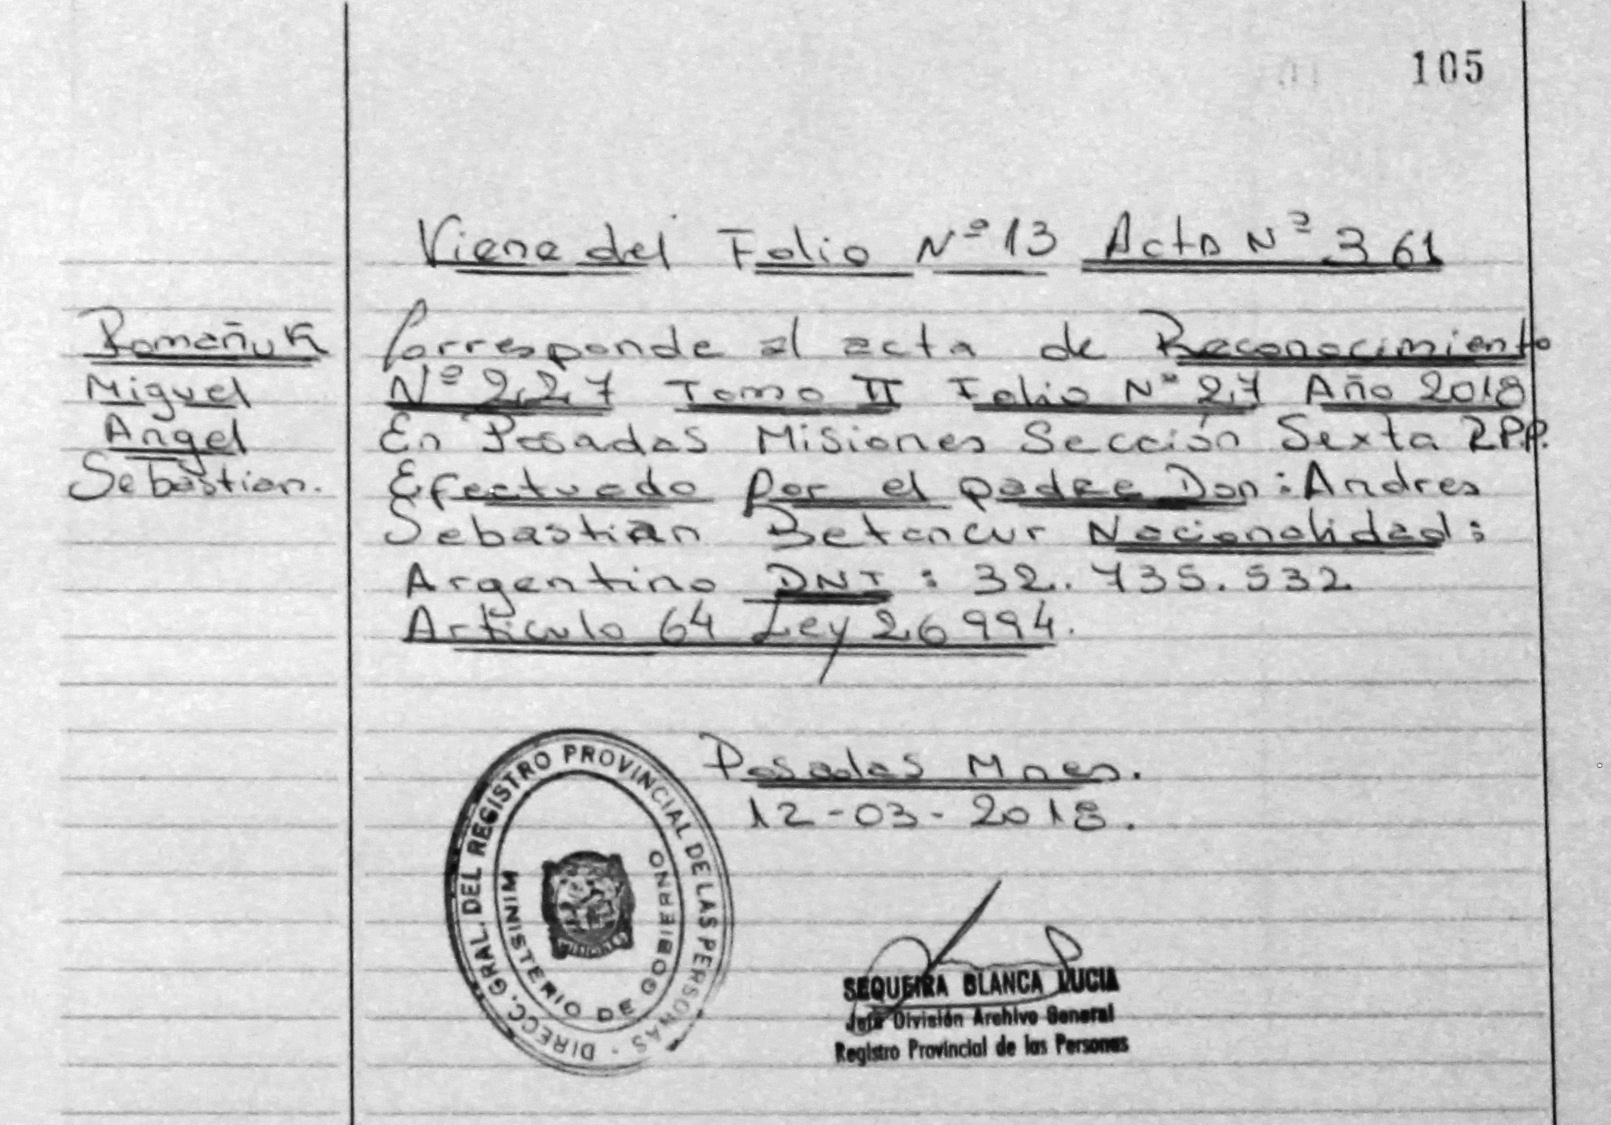 105
Viene del Folio Nº 13 Acta Nº 361
Romañuk
Miguel
Angel
Sebastian.
Corresponde al acta de Reconocimiento
Nº 227 Tomo II Folio Nº 27 Año 2018
En Posadas Misiones Sección Sexta R.P.P.
Efectuado por el padre Don: Andres
Sebastian Betancur Nacionalidad:
Argentino DNI: 32.735.532
Articulo 64 Ley 26994.
Posadas Mnes.
12-03-2018.
DIRECC. GRAL. DEL REGISTRO PROVINCIAL DE LAS PERSONAS -
MINISTERIO DE GOBIERNO
MISIONES
SEQUEIRA BLANCA LUCIA
Jefe División Archivo General
Registro Provincial de las Personas